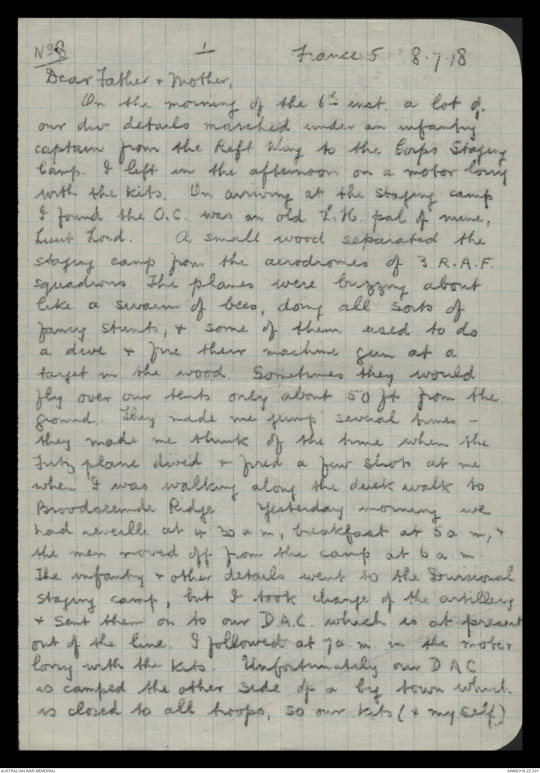 No 8 1 France 5 8.7.18
Dear Father & Mother,
On the morning of the 6th inst. a lot of
our div. details marched under an infantry
captain from the Reft Wing to the Corps Staging
Camp. I left in the afternoon on a motor lorry
with the kits. On arriving at the staging camp
I found the O.C. was an old L.H. pal of mine,
Lieut Lord. A small wood separated the
staging camp from the aerodromes of 3 R.A.F.
squadrons. The planes were buzzing about
like a swarm of bees, doing all sorts of
fancy stunts, & some of them used to do
a dive & fire their machine gun at a
target in the wood. Sometimes they would
fly over our tents only about 50 ft from the
ground. They made me jump several times -
they made me think of the time when the
Fritz plane dived & fired a few shots at me
when I was walking along the duck walk to
Broodseinde Ridge. Yesterday morning we
had reveille at 4 30 a m, breakfast at 5 a m, &
the men moved off from the camp at 6 a m
The infantry & other details went to the Divisional
staging camp, but I took charge of the artillery
& sent them on to our D.A.C. which is at present
out of the line. I followed at 7 a. m. in the motor
lorry with the kits. Unfortunately our D A C
is camped the other side of a big town which
is closed to all troops, so our kits (& myself)
AUSTRALIAN WAR MEMORIAL